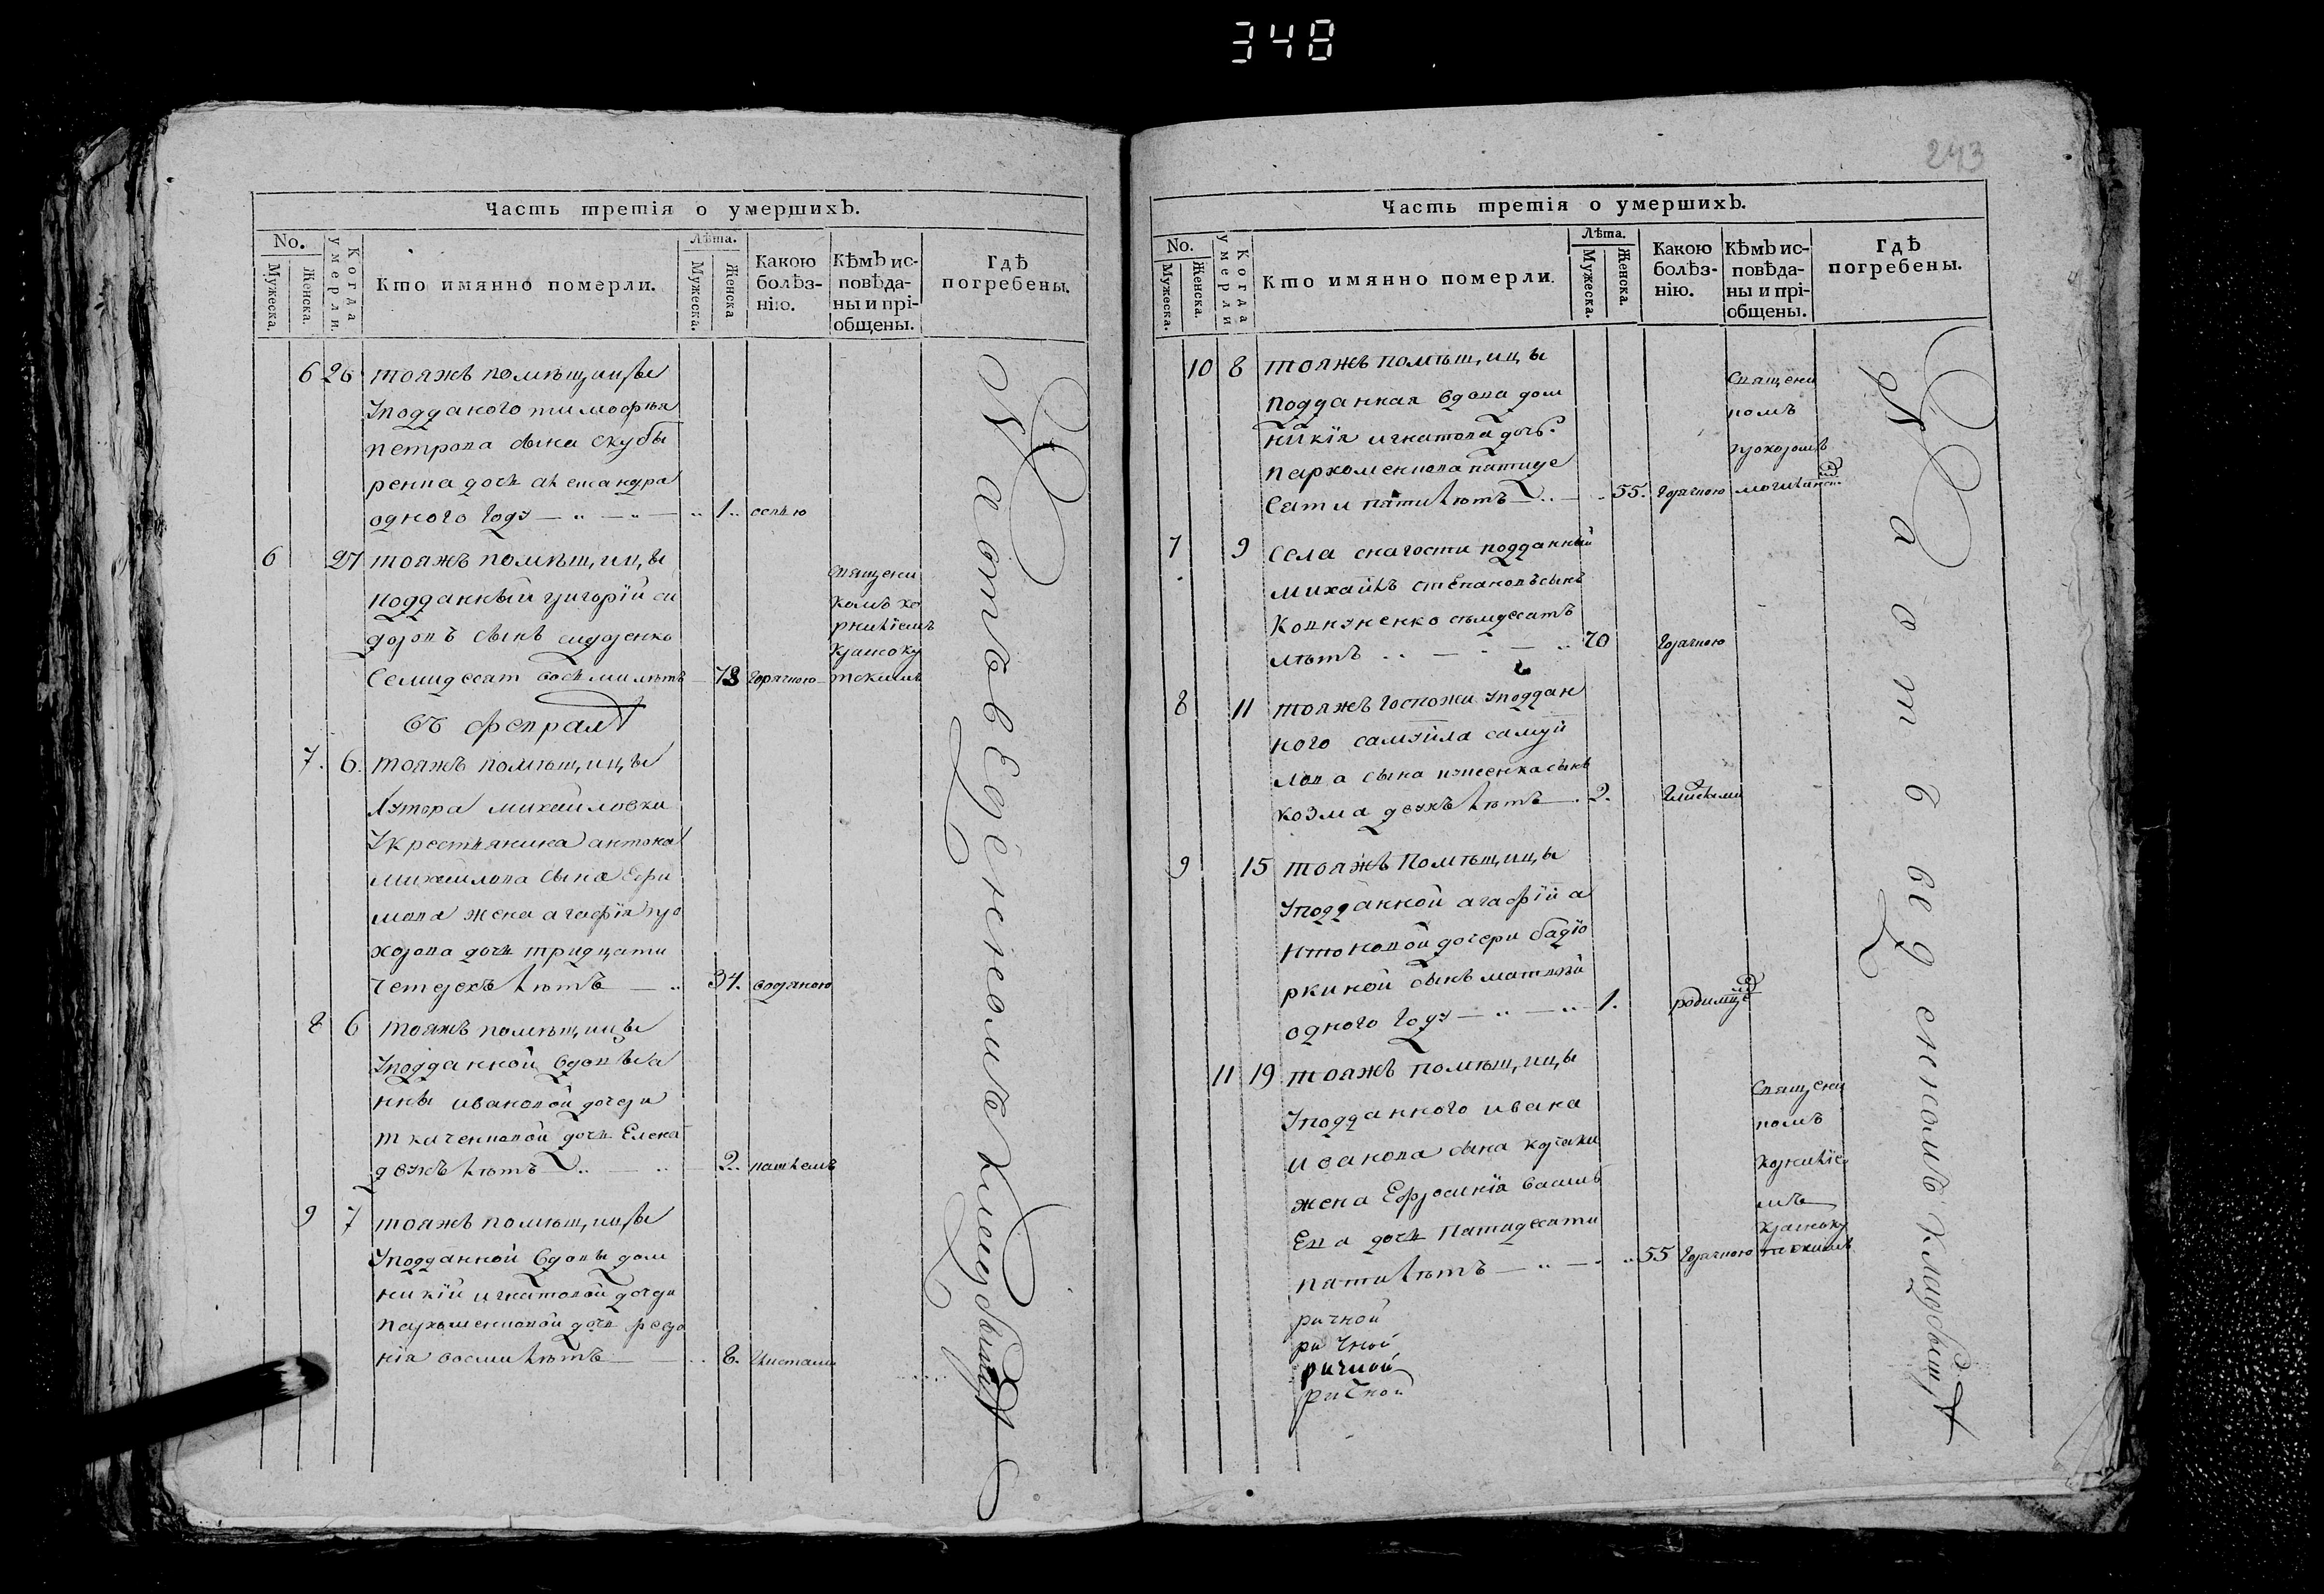 348
Часть третія о умершихъ.
No.
Мужеска.
Женска.
Когда умерли.
Кто имянно померли.
Лѣта.
Мужеска.
Женска
Какою болѣз-
нію.
Кѣмъ ис-
повѣда-
ны и прі-
общены.
Гдѣ
погребены.
6 26 тояжъ помѣщицы
уподданого тимофѣя
петрова сына скубы
ренка дочь александра
одного году 1. оспою
6 27 тояжъ помѣщицы
подданный григорій си
доровъ сынъ сидоренко
Семидесят восьми лѣтъ 78 горячкою
священи
комъ ко
рниліемъ
въ феврал
7. 6. тояжъ помѣщицы
хутора михайловки
укрестьянина антона
михайлова сына
жена агафія про
хорова дочь тридцати
четырехъ лѣтъ 34. водяною
8 6 тояжъ помѣщицы
уподданной вдовы а
нны ивановой дочери
ткаченковой дочь Елена
двухъ лѣтъ 2. кашлемъ
9 7 тояжъ помѣщицы
уподданной вдовы дом
никіи игнатовой дочери
пархоменковой дочь февро
нія восми лѣтъ 8. глистами
На отведенномъ кладбищѣ
243
Часть третія о умершихъ.
No.
Мужеска.
Женска.
Когда умерли
Кто имянно померли.
Лѣта.
Мужеска.
Женска.
Какою
болѣз-
нію.
Кѣмъ ис-
повѣда-
ны и прі-
общены.
Гдѣ
погребены.
10 8 тояжъ помѣщицы
подданная вдова дом
никія игнатова дочь
пархоменкова пятиде
сяти пяти лѣтъ 55. горячкою
священи
комъ
прохоромъ
7 9 села снагости подданный
михайлъ степановъ сынъ
семдесятъ
лѣтъ 70 горячкою
8 11 тояжъ госпожи уподдан
ного самуйла самуй
лова сына сынъ
козма двухъ лѣтъ 2. глистами
9 15 тояжъ помѣщицы
уподданной агафіи а
нтоновой дочери
сынъ матвѣй
одного году 1. родимцѣ
11 19 тояжъ помѣщицы
уподданного ивана
иванова сына
жена Ефросинія василь
Ева дочь пятидесяти
пяти лѣтъ 55 горячкою
священи
комъ
корниліе
мъ
ричной
ричной
ричной
ричной
На отведенномъ кладбищѣ